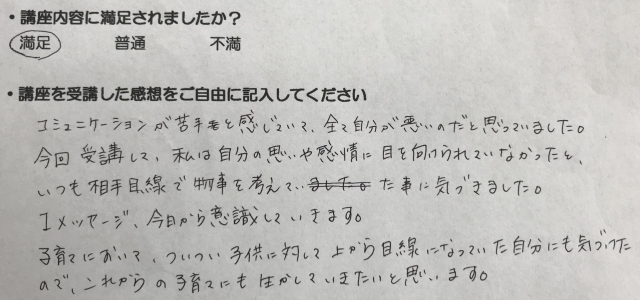 ・講座内容に満足されましたか？
満足 普通 不満
・講座を受講した感想をご自由に記入してください
コミュニケーションが苦手と感じていて、全て自分が悪いのだと思っていました。
今回受講して、私は自分の思いや感情に目を向けられていなかったと、
いつも相手目線で物事を考えていました。た事に気づきました。
Iメッセージ、今日から意識していきます。
子育てにおいて、ついつい子供に対して上から目線になっていた自分にも気づけた
ので、これからの子育てにも生かしていきたいと思います。